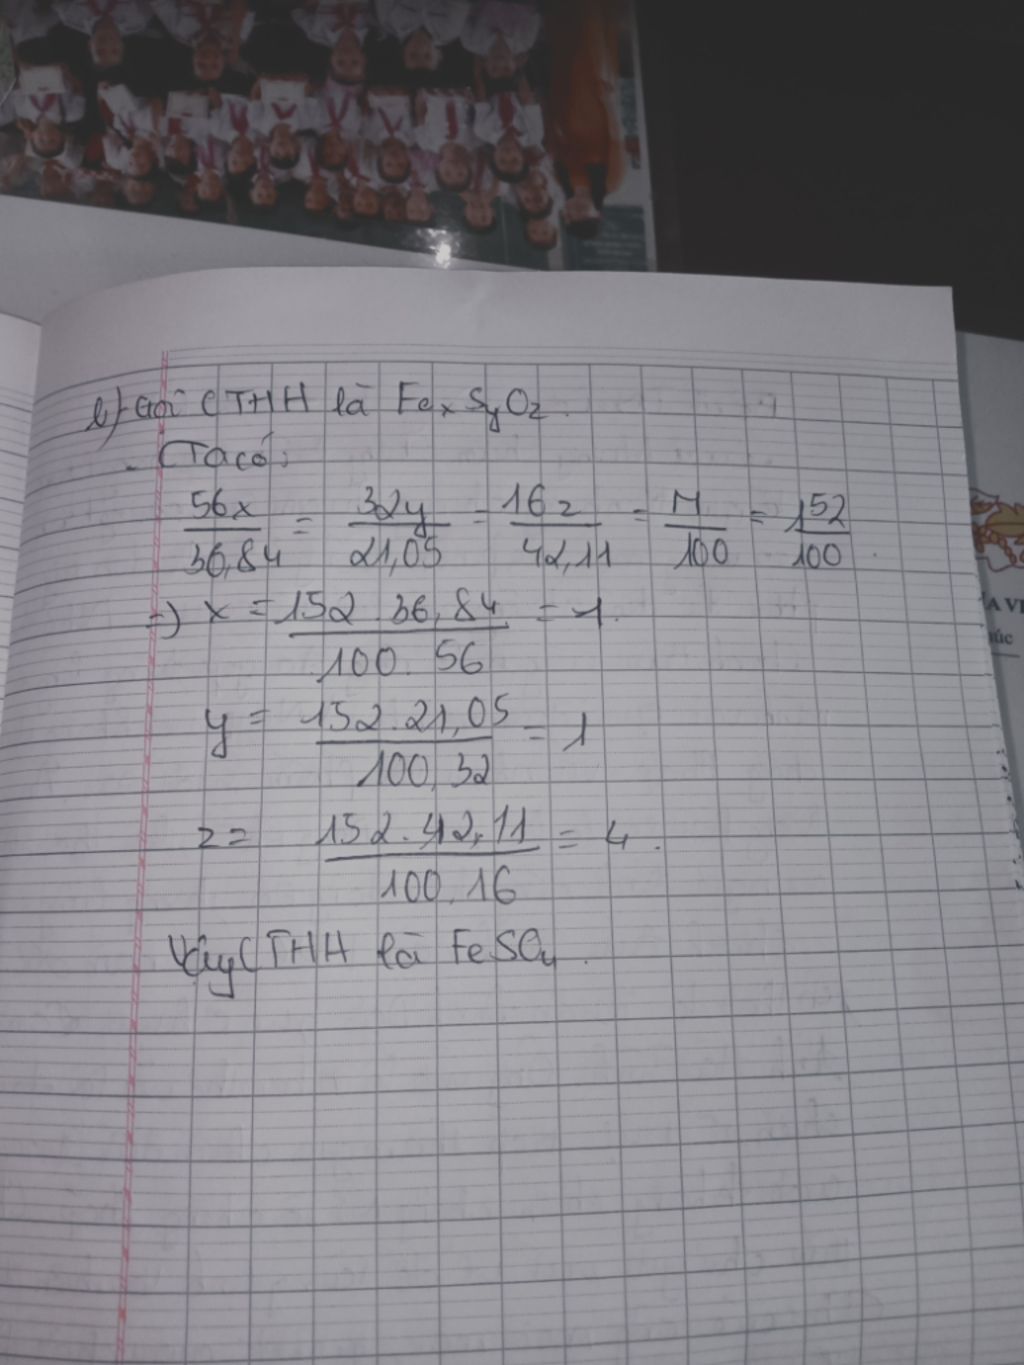 b) Gọi CTHH là FexSyOz.
- Ta có:
56x/36,84 = 32y/21,05 = 16z/42,11 = M/100 = 152/100
=) x = 152.36,84/100.56 = 1.
y = 152.21,05/100.32 = 1
z = 152.42,11/100.16 = 4.
Vậy CTHH là FeSO4.
A VI
úc